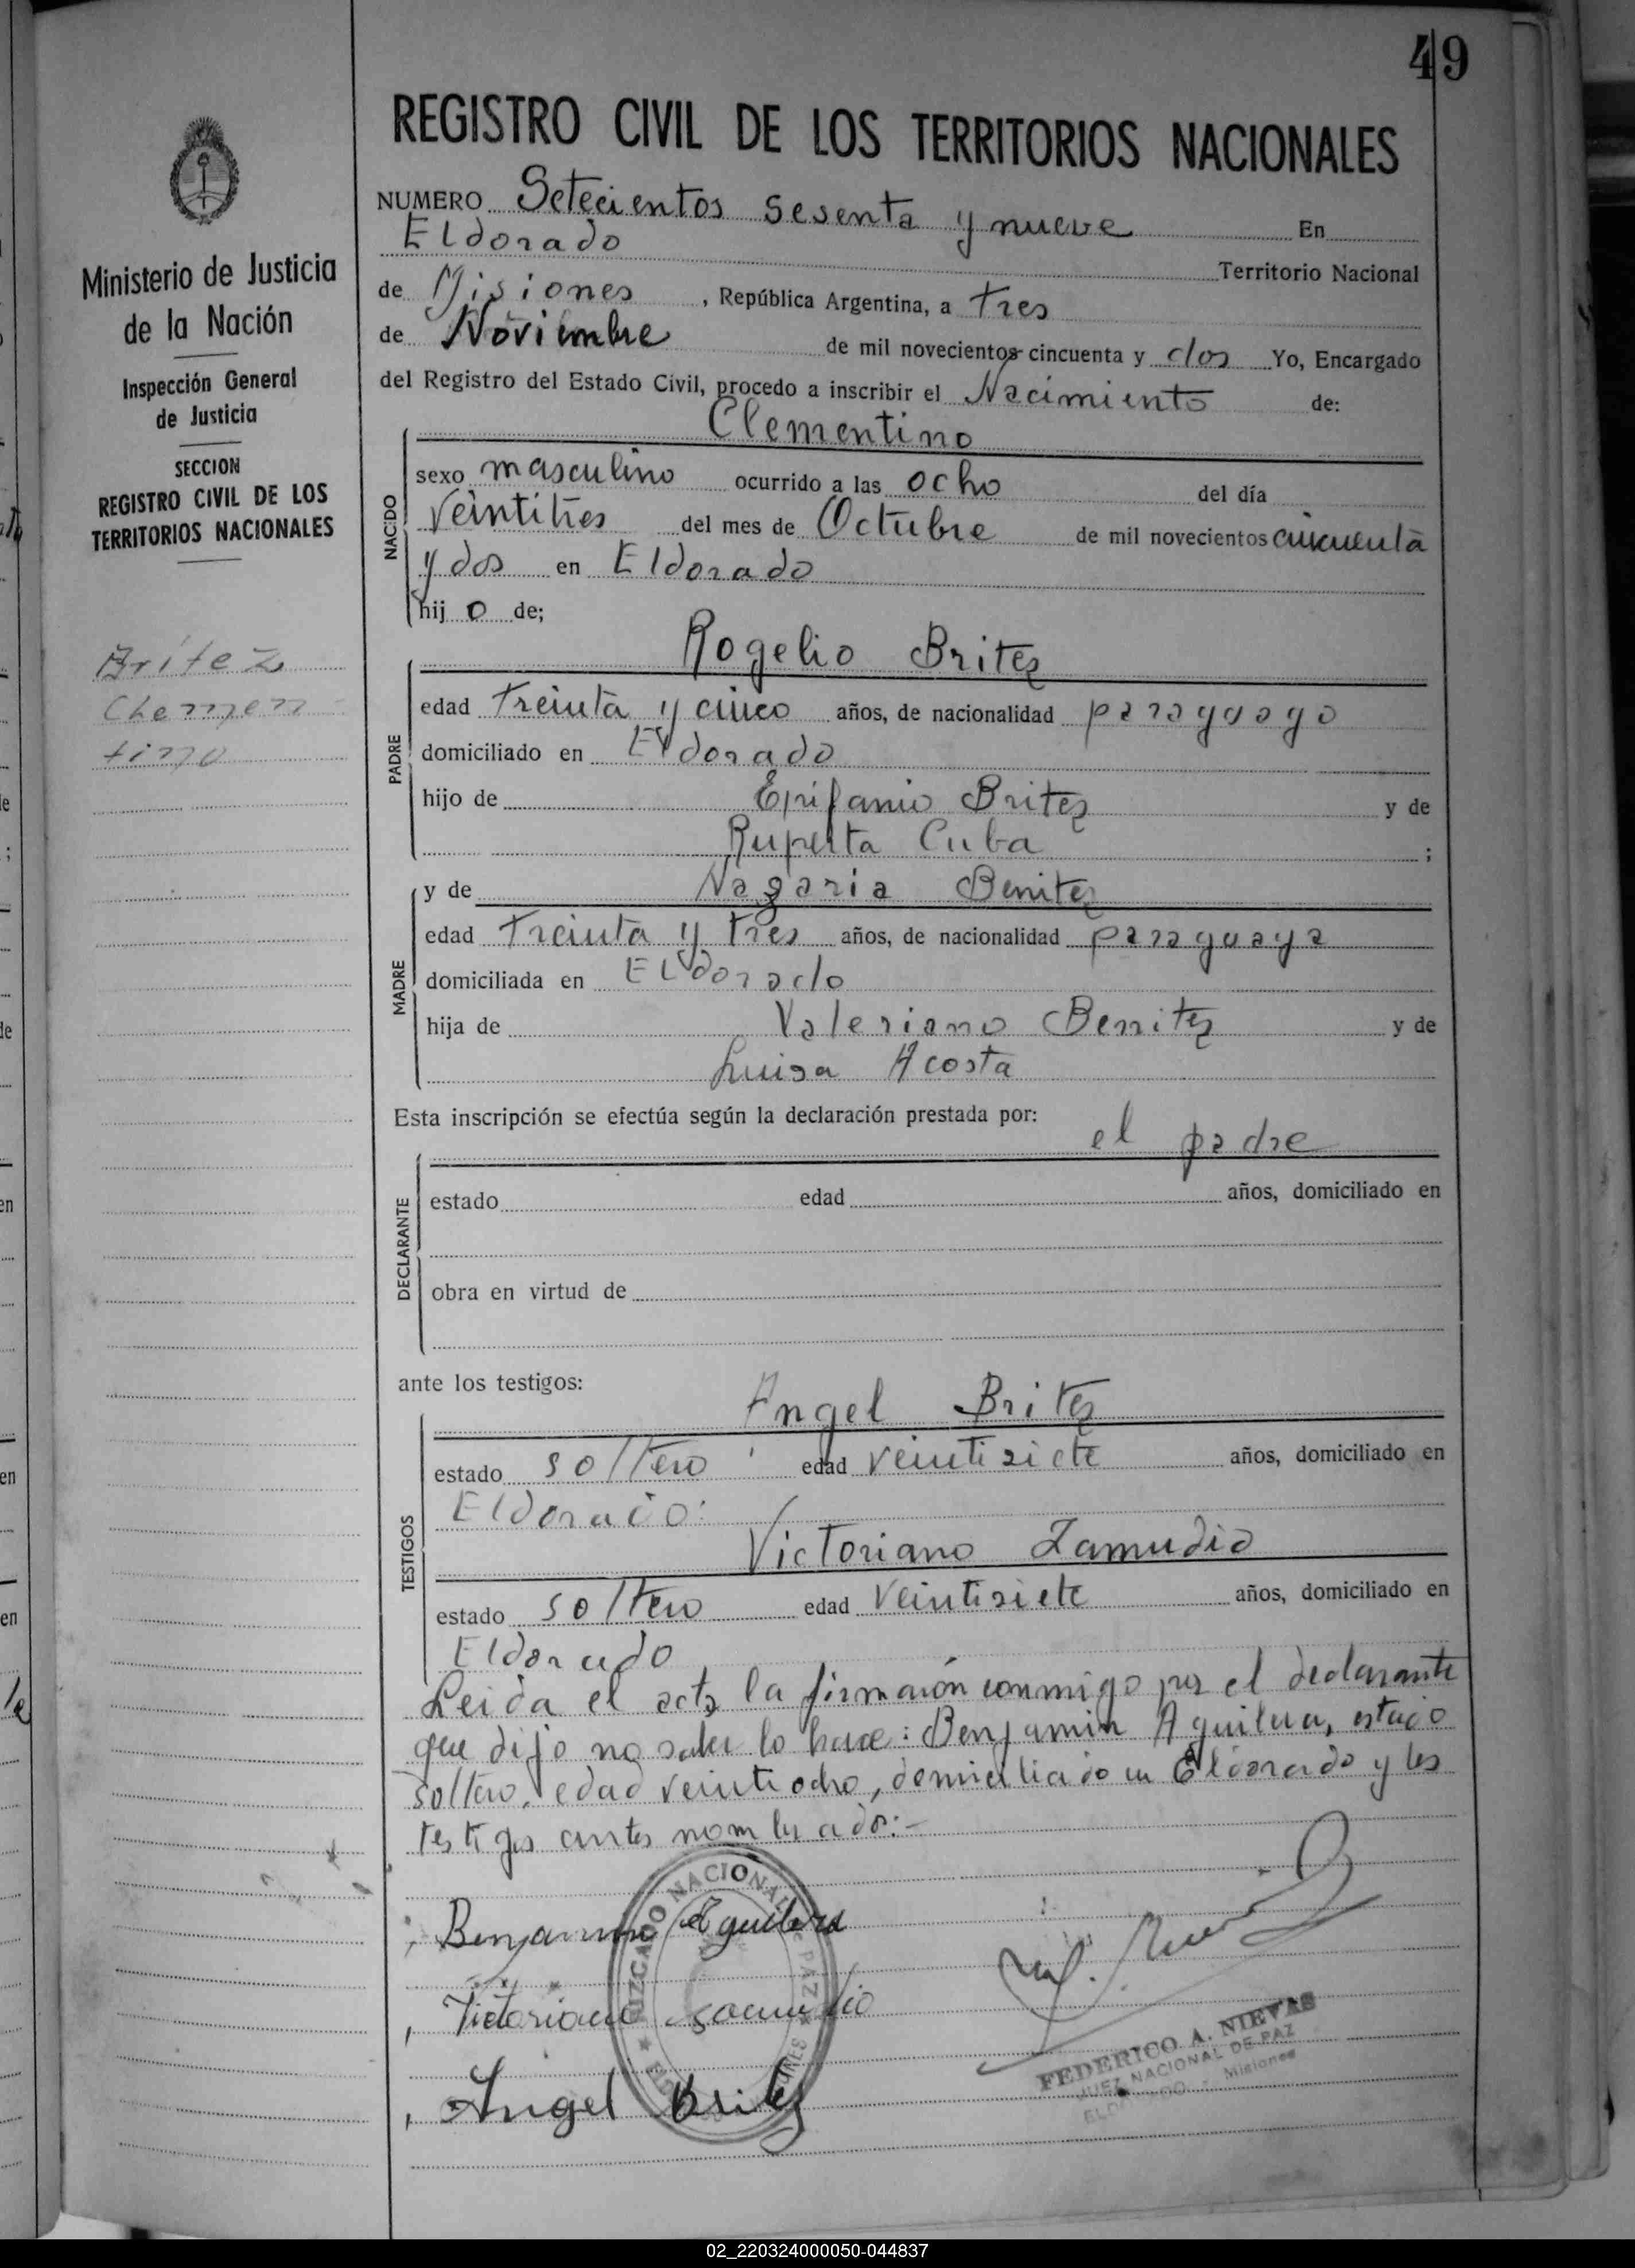 49
REGISTRO CIVIL DE LOS TERRITORIOS NACIONALES
Ministerio de Justicia
de la Nación
Inspección General
de Justicia
SECCION
REGISTRO CIVIL DE LOS
TERRITORIOS NACIONALES
Britez
Clemen
tino
NUMERO Setecientos sesenta y nueve En
Eldorado Territorio Nacional
de Misiones , República Argentina, a tres
de Noviembre de mil novecientos cincuenta y dos Yo, Encargado
del Registro del Estado Civil, procedo a inscribir el Nacimiento de:
Clementino
NACIDO
sexo masculino ocurrido a las ocho del día
veintitres del mes de Octubre de mil novecientos cincuenta
y dos en Eldorado
hij o de;
Rogelio Britez
PADRE
edad treinta y cinco años, de nacionalidad paraguayo
domiciliado en Eldorado
hijo de Epifanio Britez y de
Ruperta Cuba ;
y de Nazaria Benitez
MADRE
edad treinta y tres años, de nacionalidad paraguaya
domiciliada en Eldorado
hija de Valeriano Benitez y de
Luisa Acosta
Esta inscripción se efectúa según la declaración prestada por:
el padre
DECLARANTE
estado edad años, domiciliado en
obra en virtud de
ante los testigos:
Angel Britez
TESTIGOS
estado soltero edad veintisiete años, domiciliado en
Eldorado.
Victoriano Zamudio
estado soltero edad veintisiete años, domiciliado en
Eldorado
Leida el acta la firmarón conmigo por el declarante
que dijo no saber lo hace: Benjamin Aguilera, estado
soltero, edad veintiocho, domiciliado en Eldorado y los
testigos antes nombrados:-
Benjamin Aguilera
Victoriano Samudio
Angel Britez
JUZGADO NACIONAL DE PAZ
FEDERICO A. NIEVAS
JUEZ NACIONAL DE PAZ
ELDORADO - Misiones
02_220324000050-044837